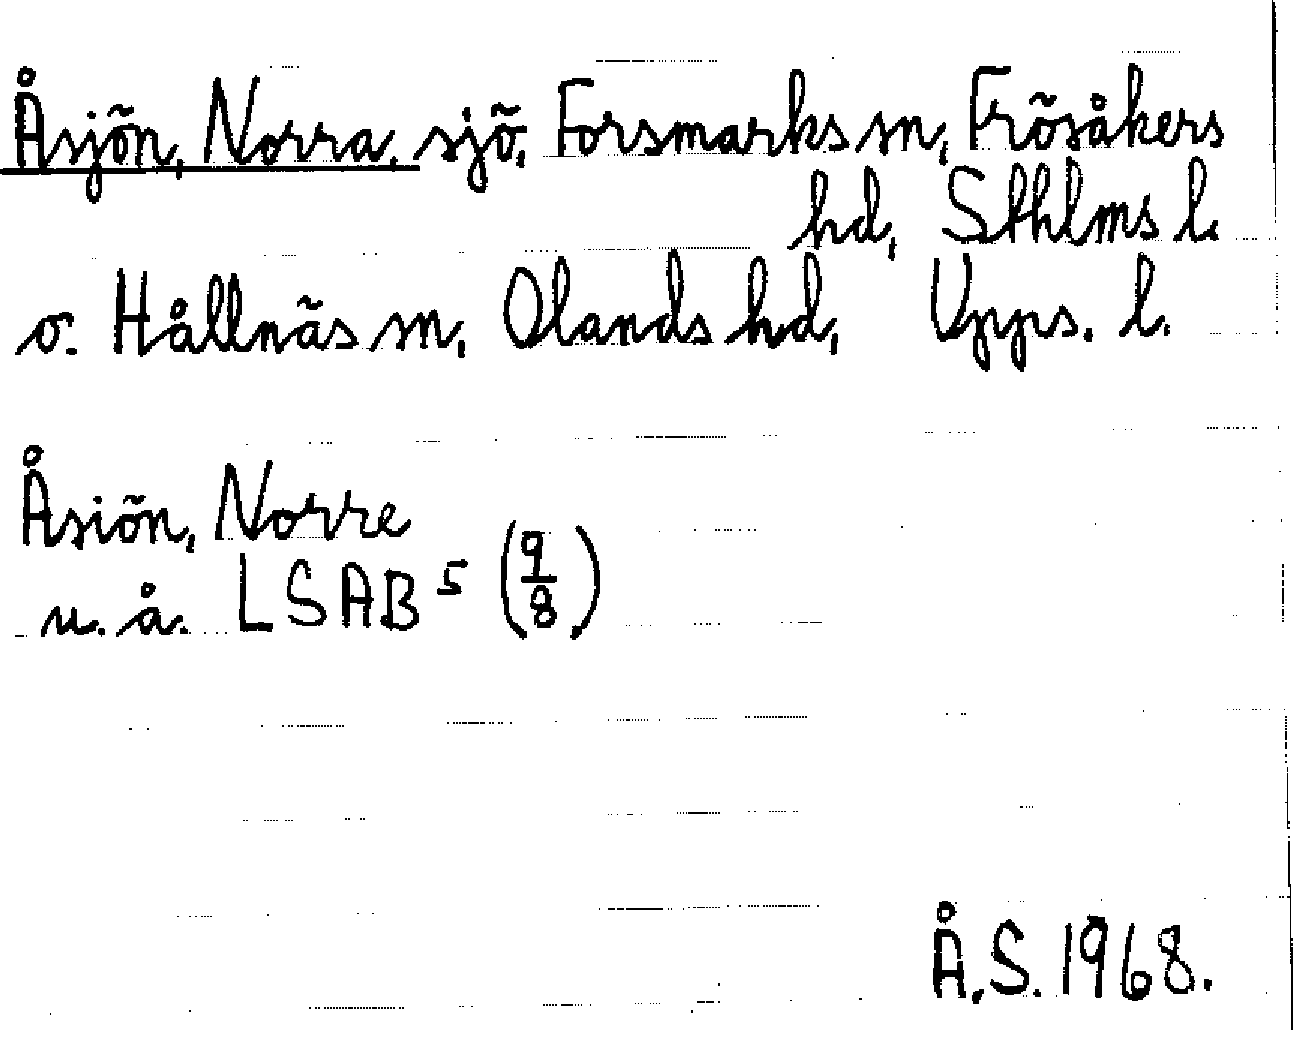 Åsjön, Norra, sjö, Forsmarks sn, Frösåkers
hd, Sthlms l.
o. Hållnäs sn, Olands hd, Upps. l.
Åsiön, Norre
u. å. LSA B⁵ (9/8)
Å.S. 1968.